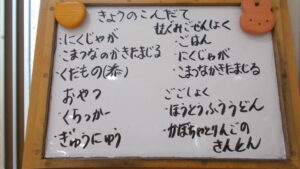 きょうのこんだて
・にくじゃが
・こまつなのかきたまじる
・くだもの(添)
おやつ
・くらっかー
・ぎゅうにゅう
・ごはん
・にくじゃが
・こまつなかきたまじる
ごごしょく
・ほうとうふううどん
・かぼちゃとりんごの
きんとん